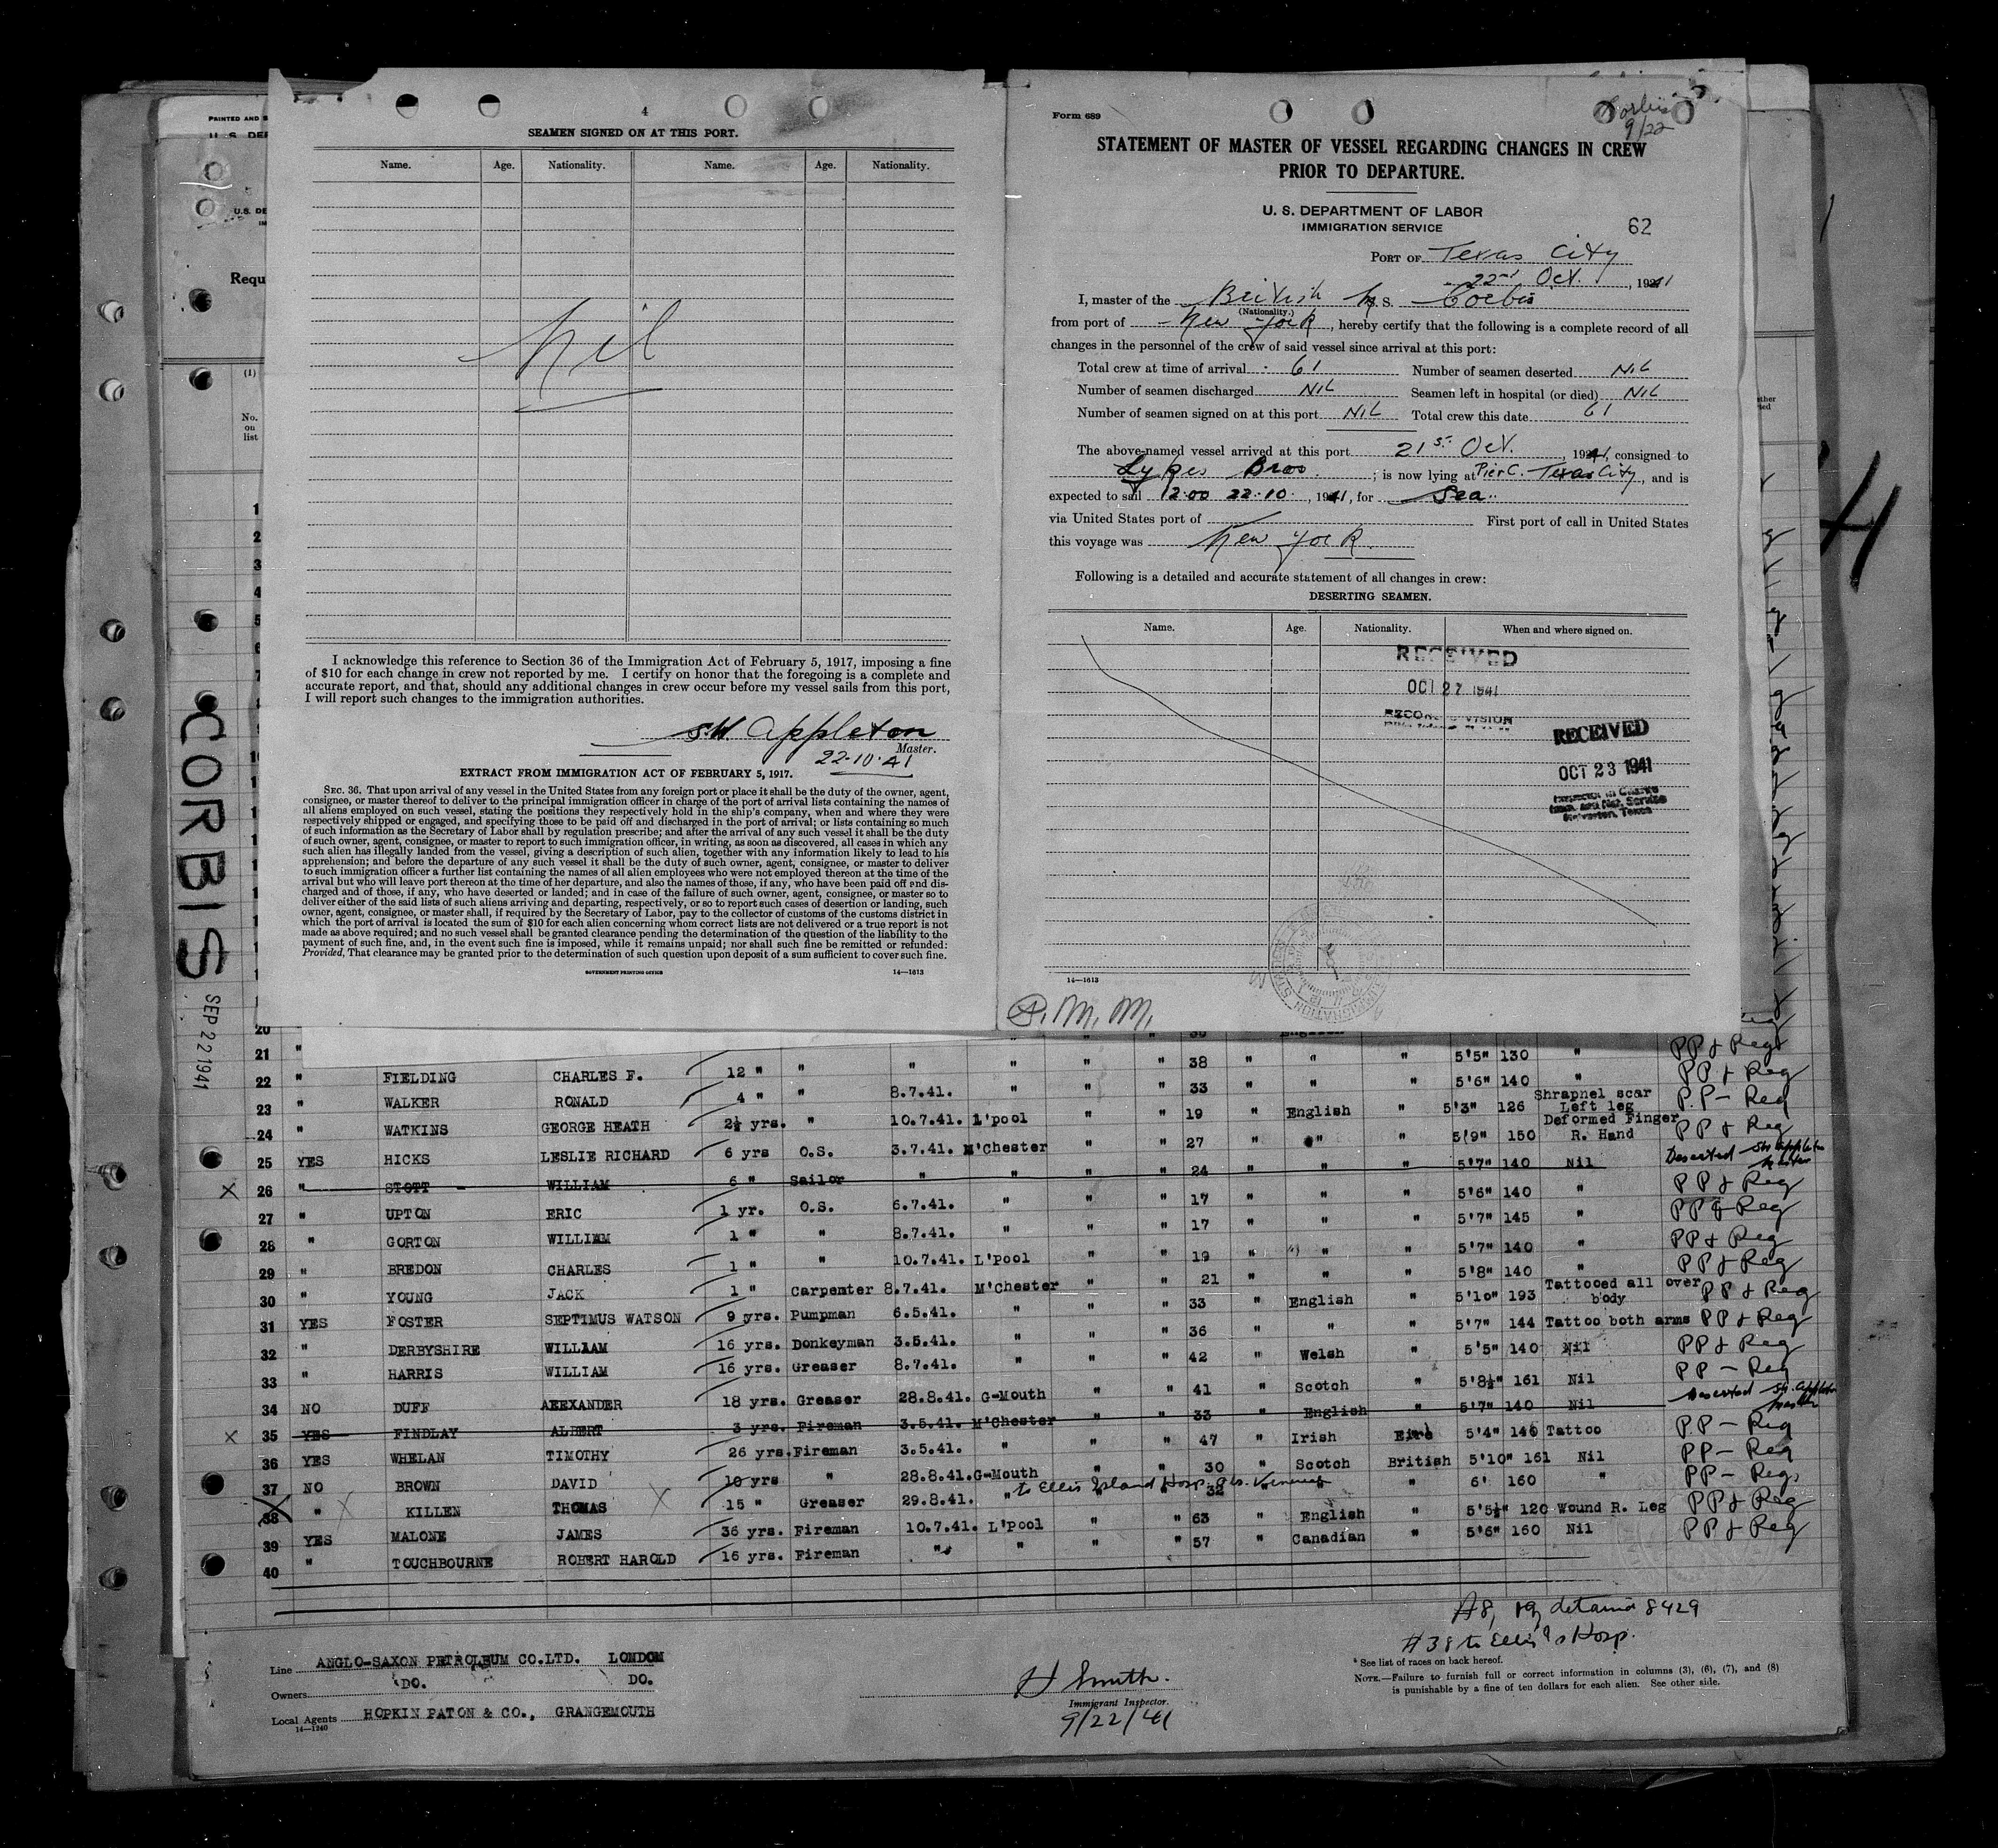 PRINTED AND S
U. S. DEP
U.S. DE
IM
Requ
(1)
No.
on
list
1
2
3
4
5
6
7
CORBIS
SEP 22 1941
4
SEAMEN SIGNED ON AT THIS PORT.
Name. Age. Nationality. Name. Age. Nationality.
Nil
I acknowledge this reference to Section 36 of the Immigration Act of February 5, 1917, imposing a fine
of $10 for each change in crew not reported by me. I certify on honor that the foregoing is a complete and
accurate report, and that, should any additional changes in crew occur before my vessel sails from this port,
I will report such changes to the immigration authorities.
S.W. Appleton
Master.
22.10.41
EXTRACT FROM IMMIGRATION ACT OF FEBRUARY 5, 1917.
SEC. 36. That upon arrival of any vessel in the United States from any foreign port or place it shall be the duty of the owner, agent,
consignee, or master thereof to deliver to the principal immigration officer in charge of the port of arrival lists containing the names of
all aliens employed on such vessel, stating the positions they respectively hold in the ship's company, when and where they were
respectively shipped or engaged, and specifying those to be paid off and discharged in the port of arrival; or lists containing so much
of such information as the Secretary of Labor shall by regulation prescribe; and after the arrival of any such vessel it shall be the duty
of such owner, agent, consignee, or master to report to such immigration officer, in writing, as soon as discovered, all cases in which any
such alien has illegally landed from the vessel, giving a description of such alien, together with any information likely to lead to his
apprehension; and before the departure of any such vessel it shall be the duty of such owner, agent, consignee, or master to deliver
to such immigration officer a further list containing the names of all alien employees who were not employed thereon at the time of the
arrival but who will leave port thereon at the time of her departure, and also the names of those, if any, who have been paid off and dis-
charged and of those, if any, who have deserted or landed; and in case of the failure of such owner, agent, consignee, or master so to
deliver either of the said lists of such aliens arriving and departing, respectively, or so to report such cases of desertion or landing, such
owner, agent, consignee, or master shall, if required by the Secretary of Labor, pay to the collector of customs of the customs district in
which the port of arrival is located the sum of $10 for each alien concerning whom correct lists are not delivered or a true report is not
made as above required; and no such vessel shall be granted clearance pending the determination of the question of the liability to the
payment of such fine, and, in the event such fine is imposed, while it remains unpaid; nor shall such fine be remitted or refunded:
Provided, That clearance may be granted prior to the determination of such question upon deposit of a sum sufficient to cover such fine.
GOVERNMENT PRINTING OFFICE 14—1613
Form 689
Corbis
9/22
STATEMENT OF MASTER OF VESSEL REGARDING CHANGES IN CREW
PRIOR TO DEPARTURE.
U. S. DEPARTMENT OF LABOR
IMMIGRATION SERVICE
62
PORT OF Texas City
22nd Oct., 1941
I, master of the British M.S. Corbis
(Nationality.)
from port of New York, hereby certify that the following is a complete record of all
changes in the personnel of the crew of said vessel since arrival at this port:
Total crew at time of arrival 61 Number of seamen deserted NIL
Number of seamen discharged NIL Seamen left in hospital (or died) NIL
Number of seamen signed on at this port NIL Total crew this date 61
The above-named vessel arrived at this port 21st Oct., 1941, consigned to
Lykes Bros.; is now lying at Pier C. Texas City, and is
expected to sail 12.00 22.10., 1941, for Sea.
via United States port of First port of call in United States
this voyage was New York.
Following is a detailed and accurate statement of all changes in crew:
DESERTING SEAMEN.
Name. Age. Nationality. When and where signed on.
RECEIVED
OCT 27 1941
RECORD DIVISION
RECEIVED
OCT 23 1941
Inspector in Charge
Imm. and Nat. Service
Galveston, Texas
14—1613
P. M. M.
4
20
21 "
38 " " " 5'5" 130 " PP & Reg
22 " FIELDING CHARLES F. 12 " " " " " " 33 " " " 5'6" 140 " PP & Reg
23 " WALKER RONALD 4 " " 8.7.41. " " " 19 " English " 5'3" 126 Shrapnel scar Left leg P.P - Reg
24 " WATKINS GEORGE HEATH 2½ yrs. " 10.7.41. L'pool " " 27 " " " 5'9" 150 Deformed Finger R. Hand PP & Reg
25 YES HICKS LESLIE RICHARD 6 yrs O.S. 3.7.41. M'Chester " " 24 " " " 5'7" 140 Nil Deserted SW Appleton Master
X 26 " STOTT WILLIAM 6 " Sailor " " " " 17 " " " 5'6" 140 " PP & Reg
27 " UPTON ERIC 1 yr. O.S. 6.7.41. " " " 17 " " " 5'7" 145 " PP & Reg
28 " GORTON WILLIAM 1 " " 8.7.41. " " " 19 " " " 5'7" 140 " PP & Reg
29 " BREDON CHARLES 1 " " 10.7.41. L'pool " " 21 " " " 5'8" 140 " PP & Reg
30 " YOUNG JACK 1 " Carpenter 8.7.41. M'Chester " " 33 " English " 5'10" 193 Tattooed all over body PP & Reg
31 YES FOSTER SEPTIMUS WATSON 9 yrs. Pumpman 6.5.41. " " " 36 " " " 5'7" 144 Tattoo both arms PP & Reg
32 " DERBYSHIRE WILLIAM 16 yrs. Donkeyman 3.5.41. " " " 42 " Welsh " 5'5" 140 Nil PP & Reg
33 " HARRIS WILLIAM 16 yrs. Greaser 8.7.41. " " " 41 " Scotch " 5'8½" 161 Nil PP - Reg
34 NO DUFF ALEXANDER 18 yrs. Greaser 28.8.41. G-Mouth " " 33 " English " 5'7" 140 Nil Deserted SW. Appleton Master
X 35 YES FINDLAY ALBERT 3 yrs. Fireman 3.5.41. M'Chester " " 47 " Irish Eire 5'4" 146 Tattoo P.P - Reg
36 YES WHELAN TIMOTHY 26 yrs. Fireman 3.5.41. " " " 30 " Scotch British 5'10" 161 Nil PP - Reg
37 NO BROWN DAVID 10 yrs " 28.8.41. G-Mouth " " 32 " " " 6' 160 " PP - Reg
to Ellis Island Hosp.
38 " KILLEN THOMAS 15 " Greaser 29.8.41. " " " 63 " English " 5'5½" 120 Wound R. Leg PP & Reg
39 YES MALONE JAMES 36 yrs. Fireman 10.7.41. L'pool " " 57 " Canadian " 5'6" 160 Nil PP & Reg
40 " TOUCHBOURNE ROBERT HAROLD 16 yrs. Fireman " " "
#38 to Ellis Is Hosp.
Line ANGLO-SAXON PETROLEUM CO.LTD. LONDON
Owners DO. DO.
Local Agents HOPKIN PATON & CO., GRANGEMOUTH
14—1240
H Smith.
Immigrant Inspector.
9/22/41
* See list of races on back hereof.
NOTE.—Failure to furnish full or correct information in columns (3), (6), (7), and (8)
is punishable by a fine of ten dollars for each alien. See other side.